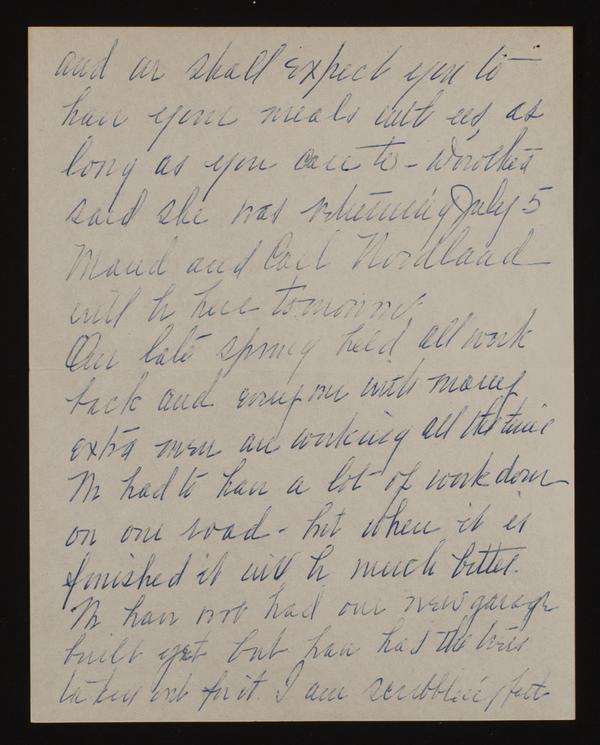 and we shall expect you to
have your meals with us, as
long as you care to - Dorothea
said she was returning July 5
Maud and Carl Nordland
will be here tomorrow.
Our late spring held all work
back and everyone with many
extra men are working all the time
We had to have a lot of work done
on our road - but when it is
finished it will be much better.
We have not had our new garage
built yet but have had the trees
taken out for it. I am scribbling but